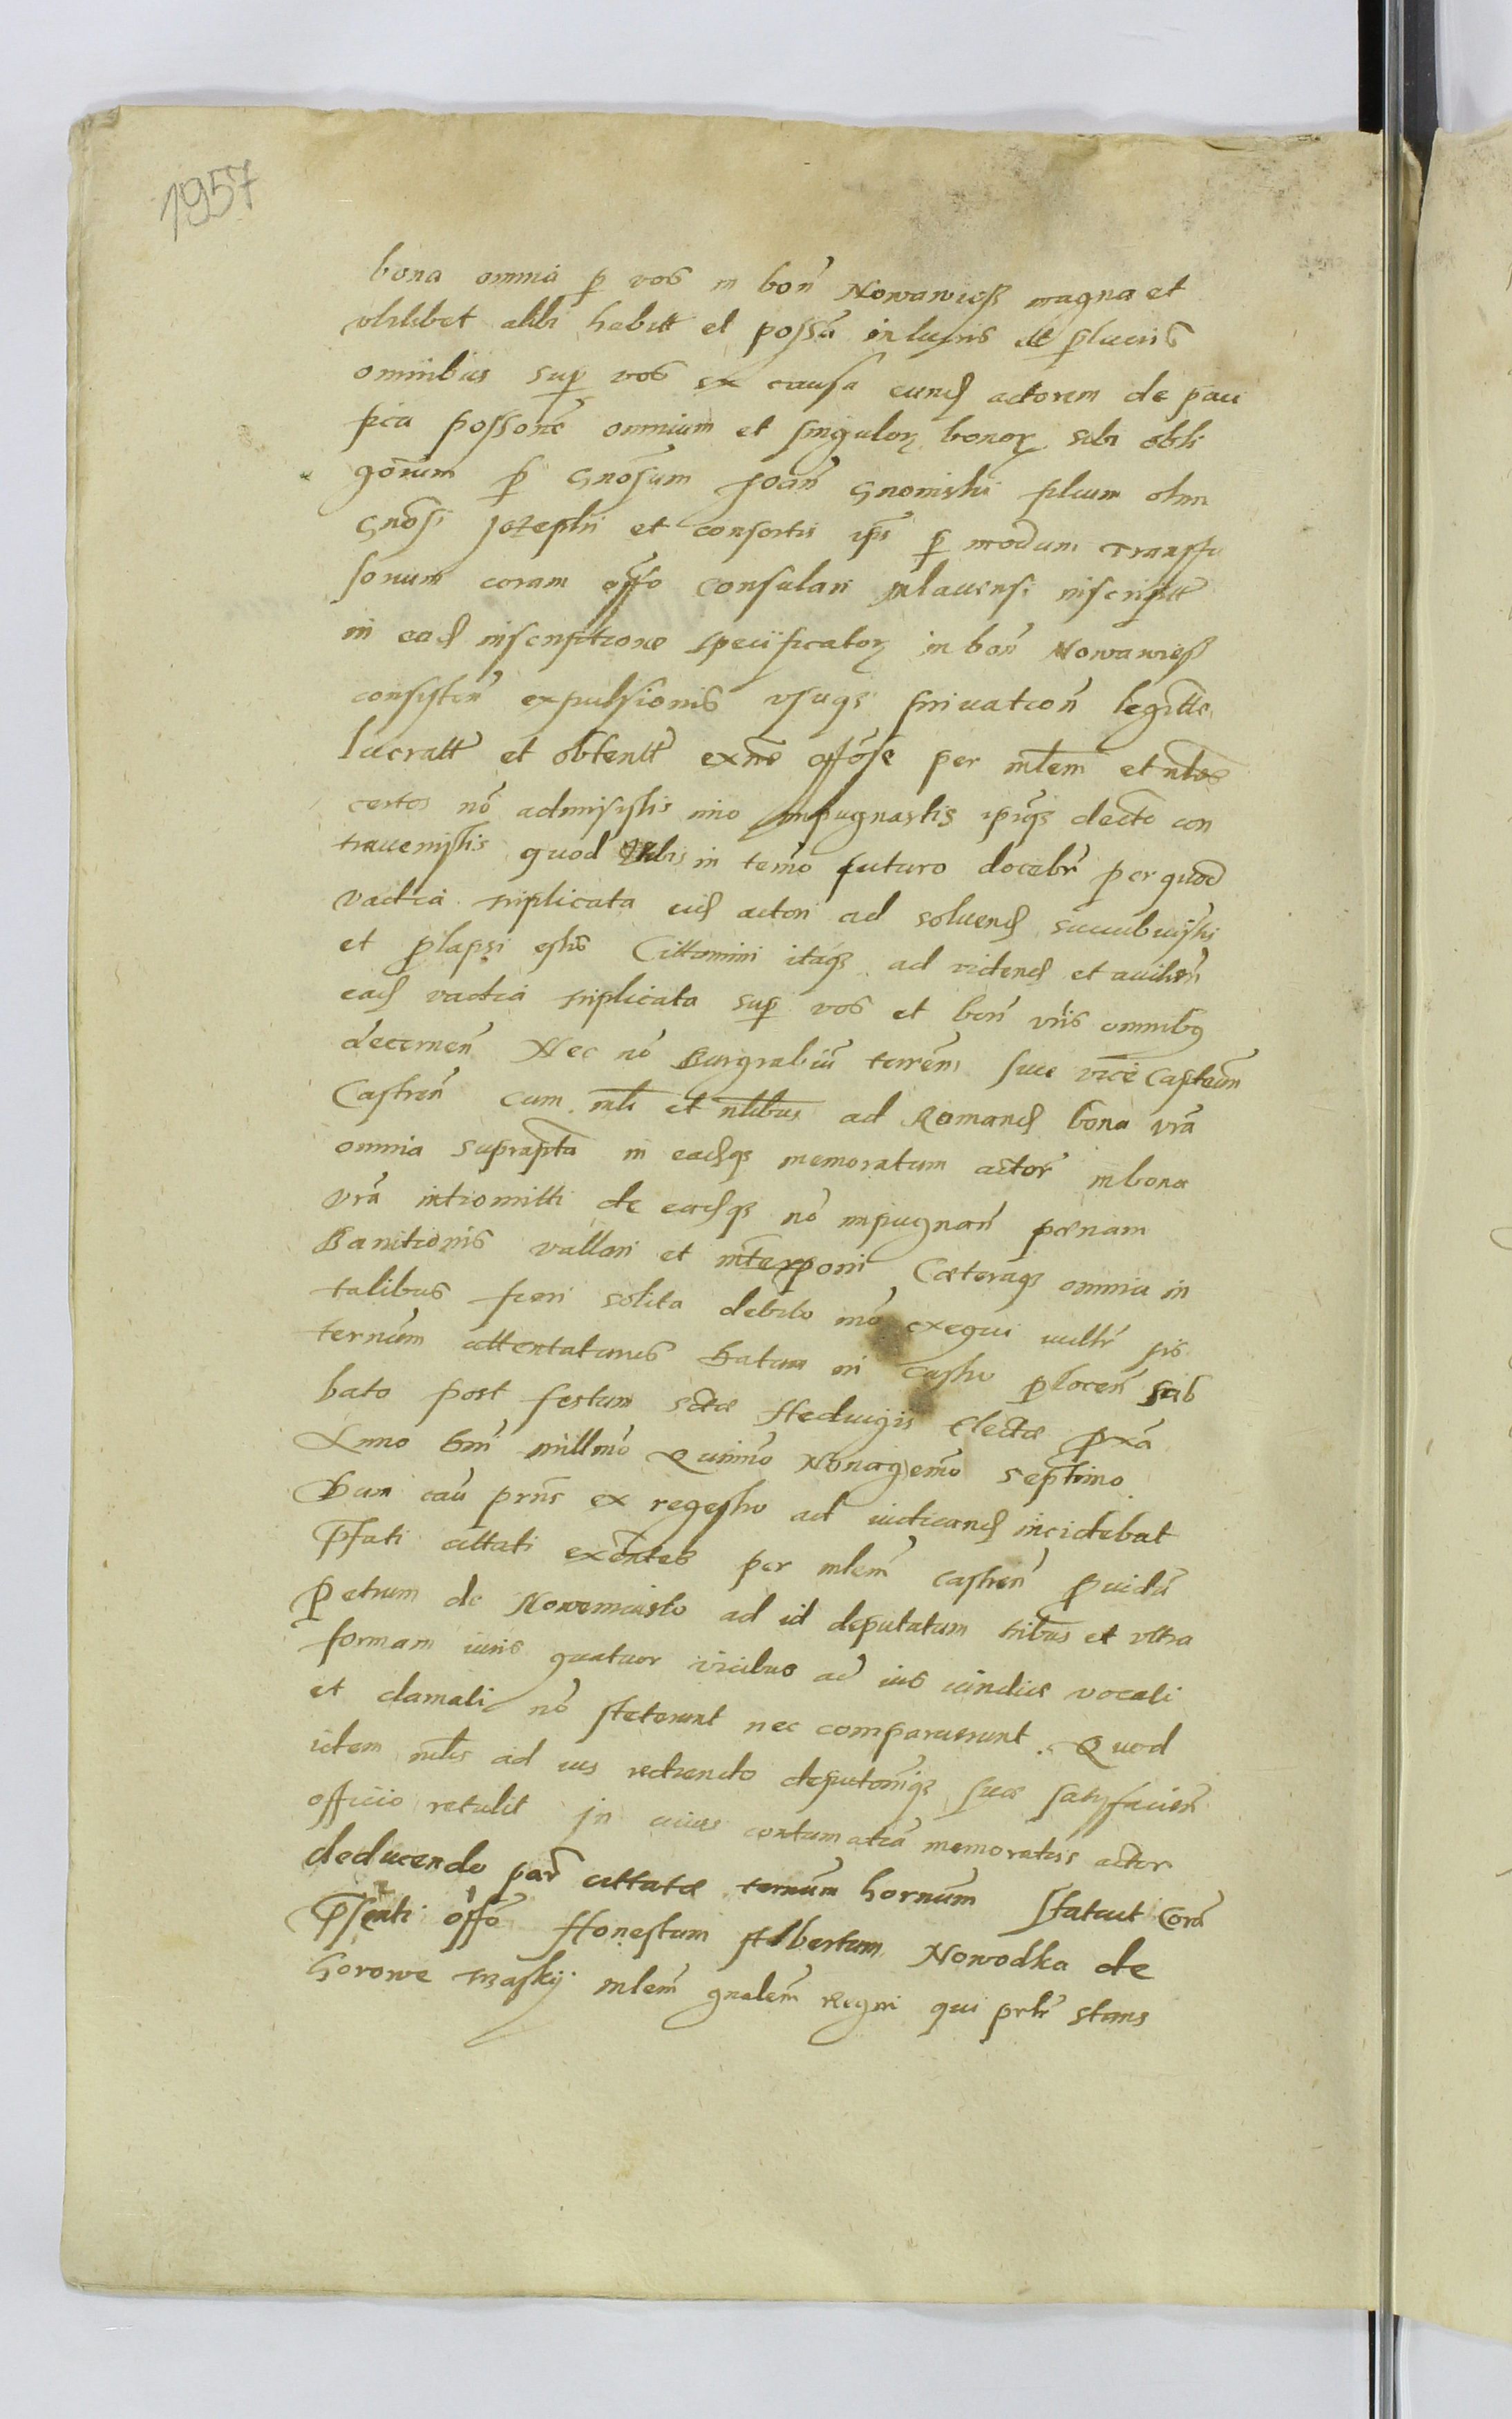 1957
bona omnia p vos in bon Nowawiess magna et
vbilibet alibi habitt et possa in lucris et plucris
omnibus sup vos ex causa eund actorem de paci
fica possone omnium et singulor bonor sibi obli
gorum p Gnosum Joan Gnoinski filium olim
Gnosi Jozephi et consortis ipsi p modum transfu
sorium coram offo consulari mlauensi inscriptt
in ead inscriptione speciificator in bon Nowawiess
consisten expulsionis vsuqs priuation legitte
lucratt et obtentt exne offose per mlem et nles
certos no admisistis imo impugnastis ipiqs decto con
travenistis quod Vobis in termo futuro docebr per quod
vadia triplicata eid actori ad soluend succubuistis
et plapsi estis Cittamini itaqs ad vidend et audien
ead vadia triplicata sup vos et bon vris omnibus
decernen Nec no Burgrabiu terren siue vice Capteum
Castren cum mli et nlibus ad Romand bona vra
omnia suprapta in eadqs memoratum actor in bona
vra intromitti de eadqs no impugnan pænam
Banitionis vallari et interponi Cæteraqs omnia in
talibus fieri solita debito mo exequi vultr sis
ternum attentaturus Datum in castro plocen Sab
bato post festum sctæ Heduigis Electæ pxa
Anno Dni millmo Quinmo Nonagemo septimo
Dum cau prns ex regestro ad iudicand incidebat
Pfati cittati exentes per mlem castren puidu
Petrum de Nowemiasto ad id deputatum tribus et vltra
formam iuris quatuor vicibus ad ius iudicii vocati
et clamati no steterunt nec comparuerunt. Quod
idem mlis ad ius reddendo deputoniqs suæ satisfacien
officio retulit In cuius contumatia memoratus actor
deducendo par cittatæ ternum hornum statuit Cora
Psenti offo Honestum Albertum Nowodka de
Gorowe trzaskij mlem gnalem Regni qui prtr stans